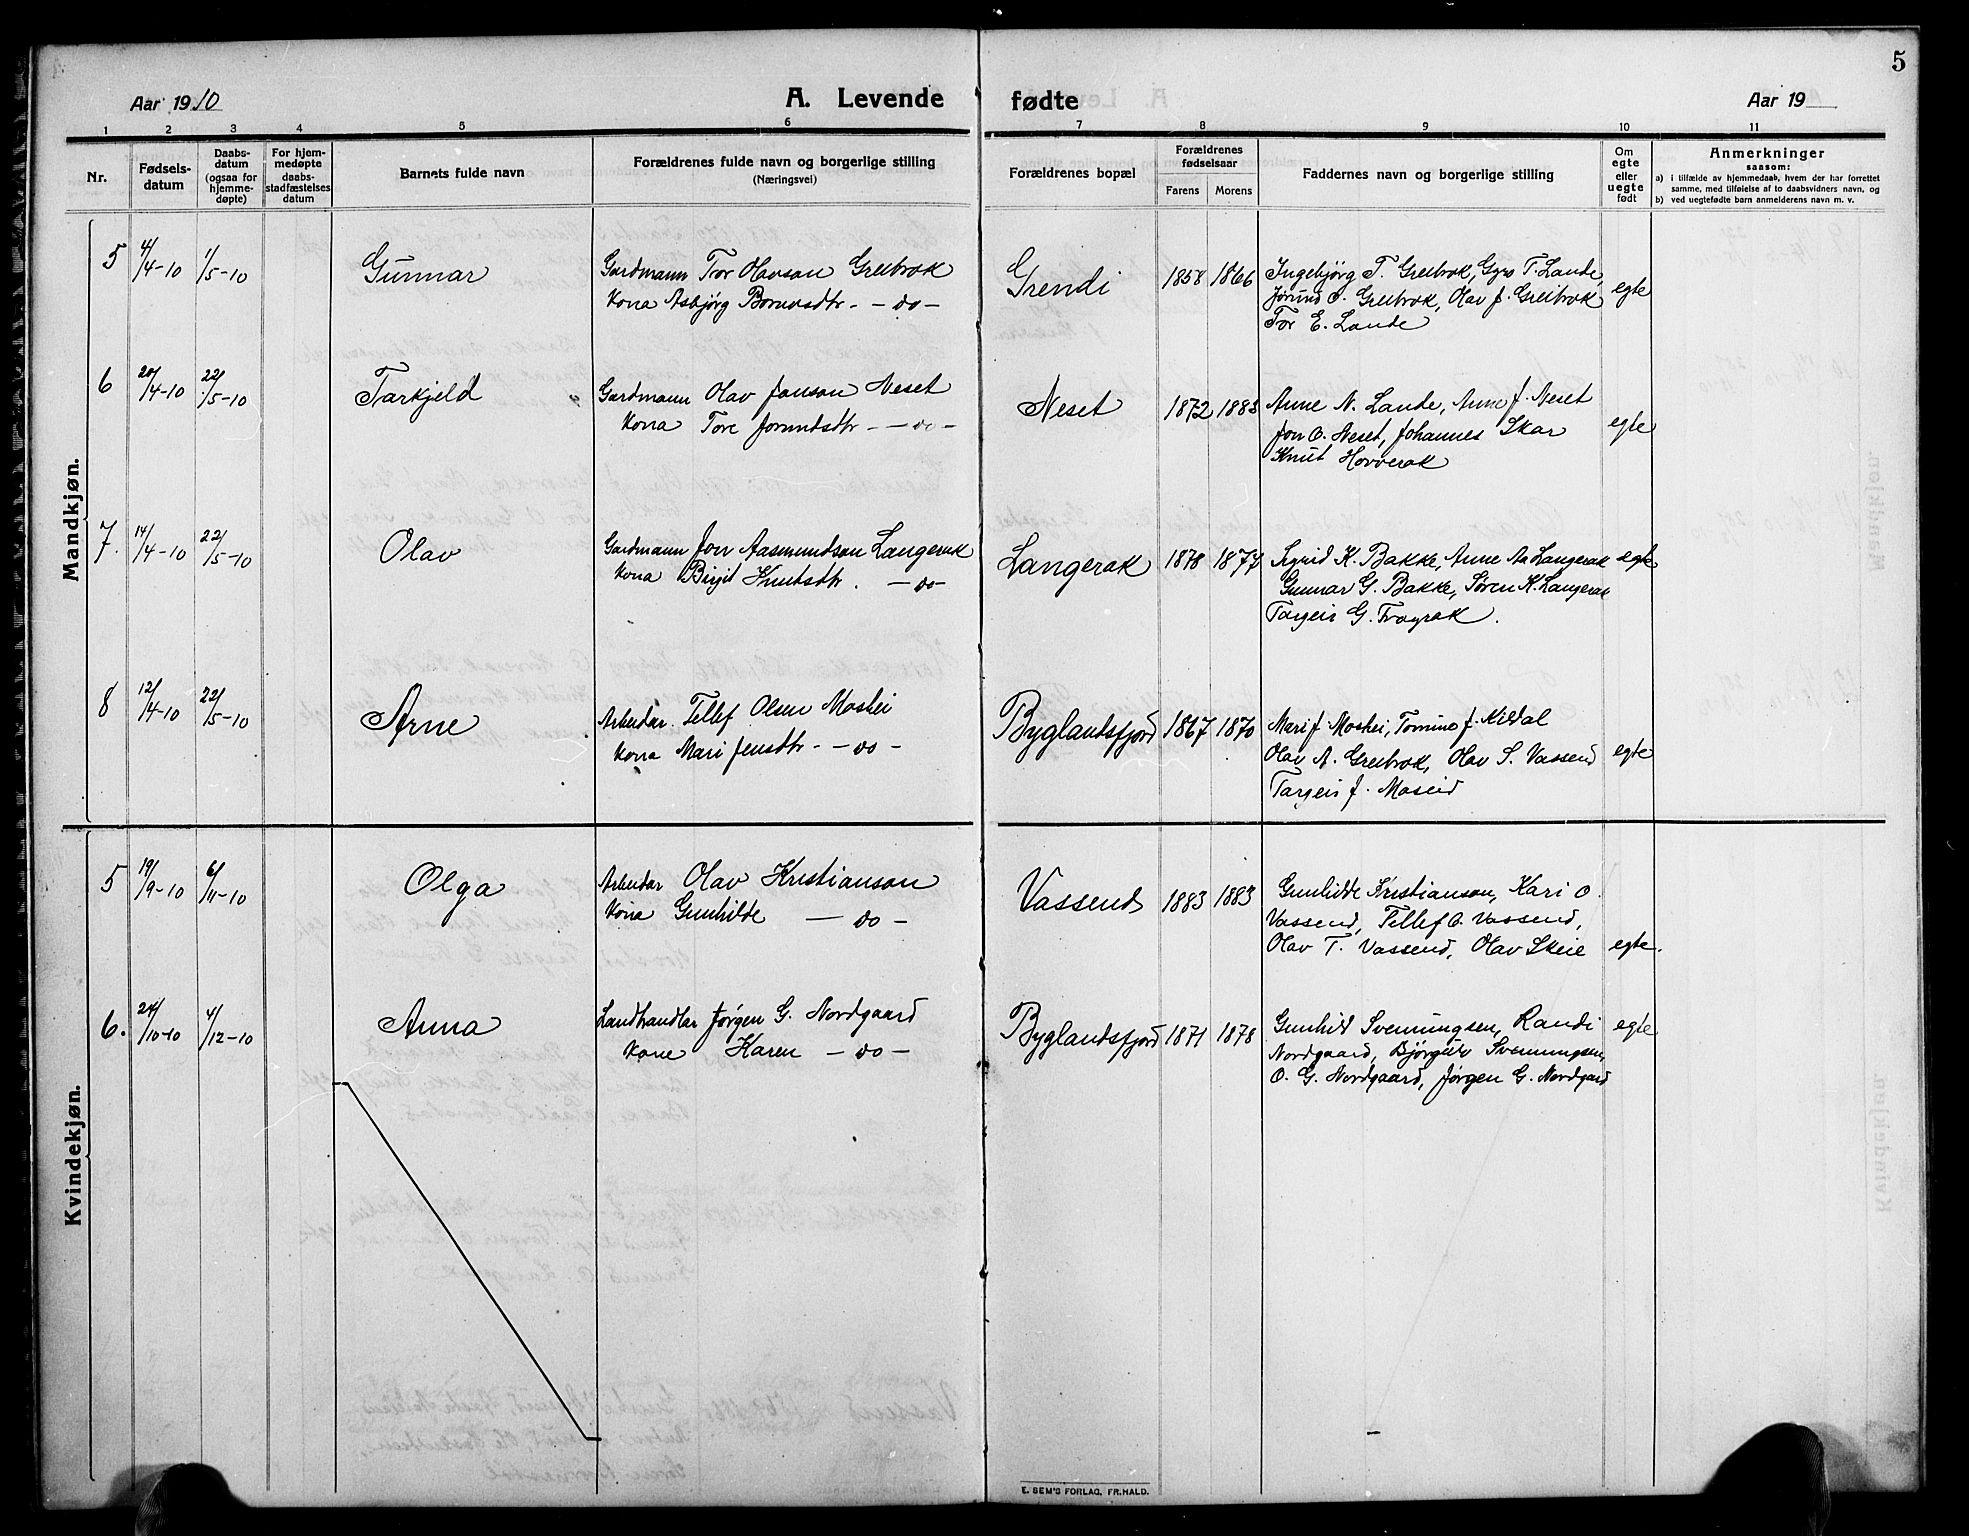 5
Aar 1910
A. Levende fødte
Aar 19
1 2 3 4 5 6 7 8 9 10 11
Nr.
Fødsels-
datum
Daabs-
datum
(ogsaa for
hjemme-
døpte)
For hjem-
medøpte
daabs-
stadfæstelses
datum
Barnets fulde navn
Forældrenes fulde navn og borgerlige stilling
(Næringsvei)
Forældrenes bopæl
Forældrenes
fødselsaar
Farens Morens
Faddernes navn og borgerlige stilling
Om
egte
eller
uegte
født
Anmerkninger
saasom:
a) i tilfælde av hjemmedaab, hvem der har forrettet
samme, med tilføielse af to daabsvidners navn, og
b) ved uegtefødte barn anmelderens navn m. v.
Mandkjøn.
5 4/4-10 1/5-10 Gunnar
Gardmann Tor Olavson Greibrok
Kona Asbjørg - do -
Grendi 1858 1866
Ingebjørg T. Greibrok, Gyro T. Lande,
Jørund O. Greibrok, Olav J. Greibrok
Tor E. Lande
egte
6 20/4-10 22/5-10 Tarkjeld
Gardmann Olav Jonson Neset
Kona Tore Jorundsdtr - do -
Neset 1872 1883
Anne N. Lande, Anne J. Neset
Jon O. Neset, Johannes Skar
Knut Hovverak
egte
7. 14/4-10 22/5-10 Olav
Gardmann Jon Aasmundson Langerak
Kona Birgit Knutsdtr. - do -
Langerak 1878 1877
Sigrid K. Bakke, Anne Aa Langerak
Gunnar G. Bakke, Søren K. Langerak
Targeir G. Frøyrak.
egte
8 12/4-10 22/5-10 Arne
Arbeidar Tellef Olsen Moshei
Kona Mari Jensdtr - do -
Byglandsfjord 1867 1870
Mari J. Moshei, Tomine J. Kildal
Olav A. Greibrok, Olav S. Vassend
Targeir J. Moseid
egte
Kvindekjøn.
5 19/9-10 6/11-10 Olga
Arbeidar Olav Kristianson
Kona Gunhilde - do -
Vassend 1883 1883
Gunhilde Kristianson, Kari O.
Vassend, Tellef O. Vassend,
Olav T. Vassend, Olav Skeie
egte.
6. 24/10-10 4/12-10 Anna
Landhandlar Jørgen G. Nordgaard
Kone Karen - do -
Byglandsfjord 1871 1878
Gunhild Svenningsen, Randi
Nordgaard, Bjørgulv Svenningsen,
O. G. Nordgaard, Jørgen G. Nordgard
egte
E. SEM'S FORLAG, FR.HALD.